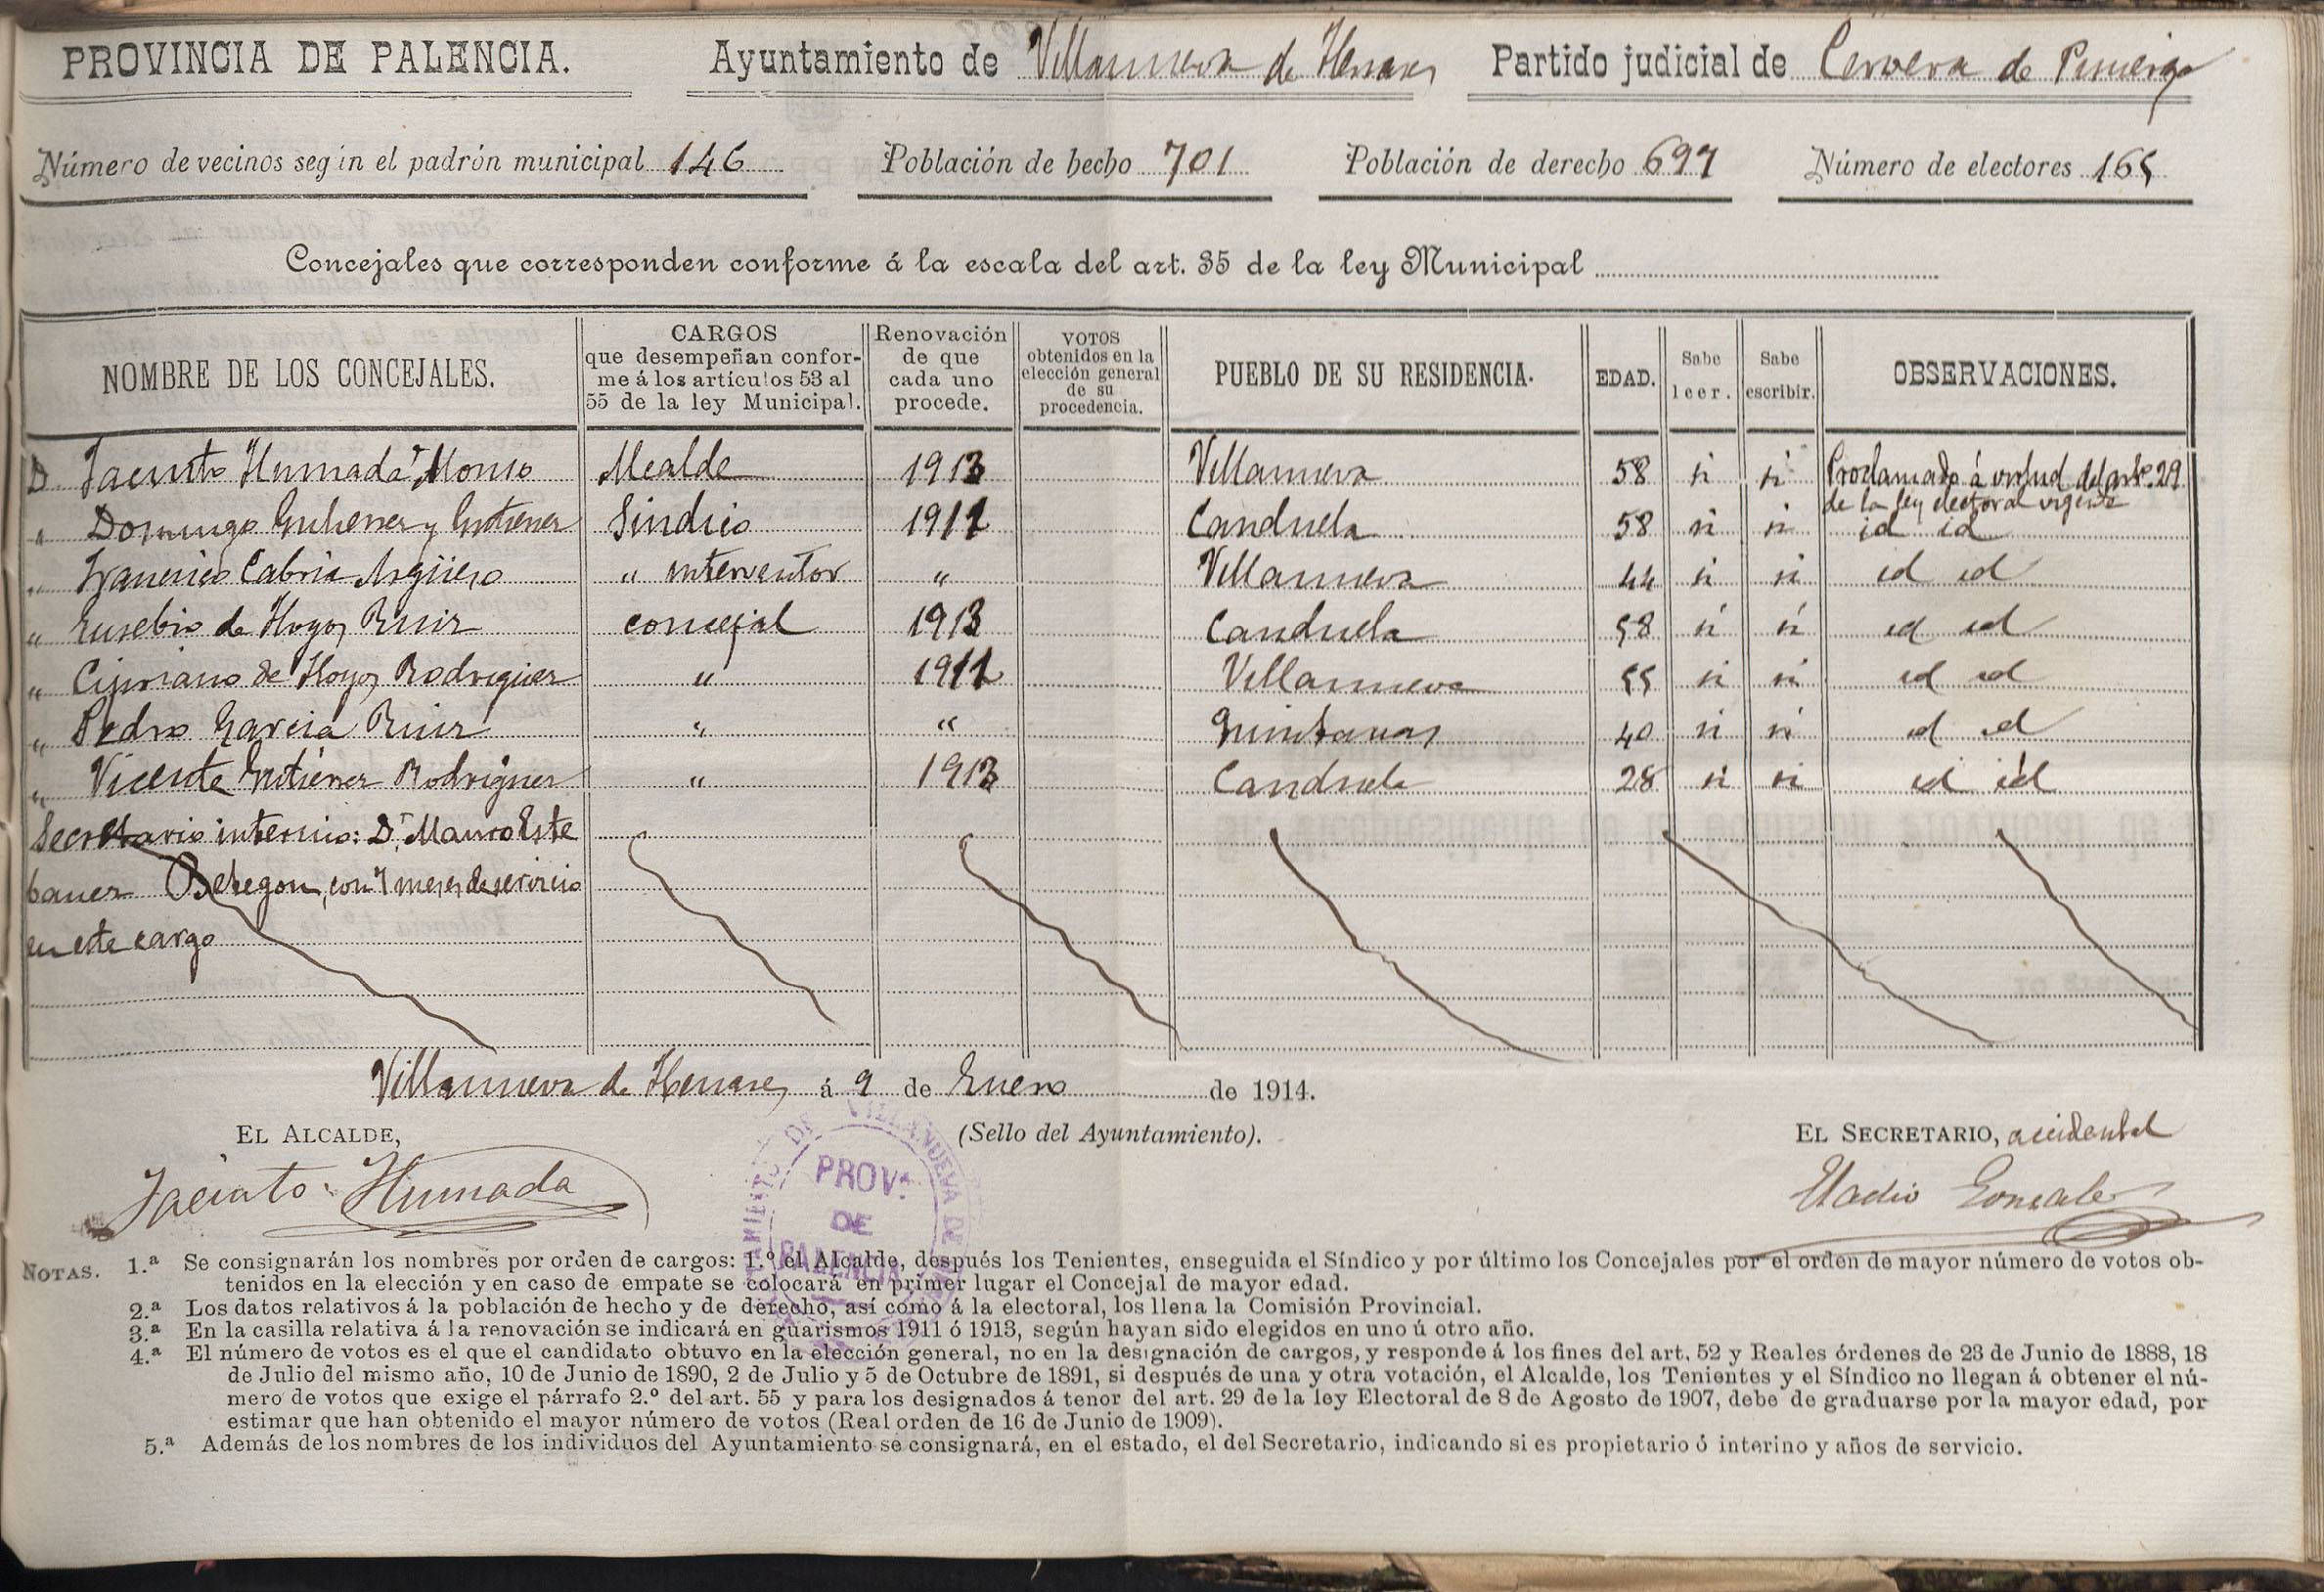 PROVINCIA DE PALENCIA. Ayuntamiento de Villanueva de Henares Partido judicial de Cervera de Pisuerga
Número de vecinos según el padrón municipal 146 Población de hecho 701 Población de derecho 697 Número de electores 165
Concejales que corresponden conforme á la escala del art. 35 de la ley Municipal
NOMBRE DE LOS CONCEJALES. CARGOS que desempeñan conforme á los artículos 53 al 55 de la ley Municipal. Renovación de que cada uno procede. VOTOS obtenidos en la elección general de su procedencia. PUEBLO DE SU RESIDENCIA. EDAD. Sabe leer. Sabe escribir. OBSERVACIONES.
D. Jacinto Humada Alonso Alcalde 1913 Villanueva 58 si si Proclamado á virtud del art.º 29 de la ley electoral vigente
" Domingo Gutierrez y Gutierrez Sindico 1911 Canduela 58 si si id id
" Francisco Cabria Argüeso " interventor " Villanueva 44 si si id id
" Eusebio de Hoyos Ruiz concejal 1913 Canduela 58 si si id id
" Cipriano de Hoyos Rodriguez " 1911 Villanueva 55 si si id id
" Pedro Garcia Ruiz " " Quintanas 40 si si id id
" Vicente Gutiérrez Rodriguez " 1913 Canduela 28 si si id id
Secretario interino: D. Mauro Este
banez con 7 meses de servicio
en este cargo
Villanueva de Henares á 9 de Enero de 1914.
EL ALCALDE, (Sello del Ayuntamiento). EL SECRETARIO, accidental
Jacinto Humada Eladio Gonzalez
AYUNTAMIENTO DE VILLANUEVA DE
PROV.ª
DE
PALENCIA
NOTAS. 1.ª Se consignarán los nombres por orden de cargos: 1.º el Alcalde, después los Tenientes, enseguida el Síndico y por último los Concejales por el orden de mayor número de votos ob-
tenidos en la elección y en caso de empate se colocará en primer lugar el Concejal de mayor edad.
2.ª Los datos relativos á la población de hecho y de derecho, así como á la electoral, los llena la Comisión Provincial.
3.ª En la casilla relativa á la renovación se indicará en guarismos 1911 ó 1913, según hayan sido elegidos en uno ú otro año.
4.ª El número de votos es el que el candidato obtuvo en la elección general, no en la designación de cargos, y responde á los fines del art. 52 y Reales órdenes de 23 de Junio de 1888, 18
de Julio del mismo año, 10 de Junio de 1890, 2 de Julio y 5 de Octubre de 1891, si después de una y otra votación, el Alcalde, los Tenientes y el Síndico no llegan á obtener el nú-
mero de votos que exige el párrafo 2.º del art. 55 y para los designados á tenor del art. 29 de la ley Electoral de 8 de Agosto de 1907, debe de graduarse por la mayor edad, por
estimar que han obtenido el mayor número de votos (Real orden de 16 de Junio de 1909).
5.ª Además de los nombres de los individuos del Ayuntamiento se consignará, en el estado, el del Secretario, indicando si es propietario ó interino y años de servicio.